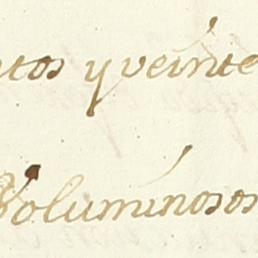 ntos y veinte
Voluminosos